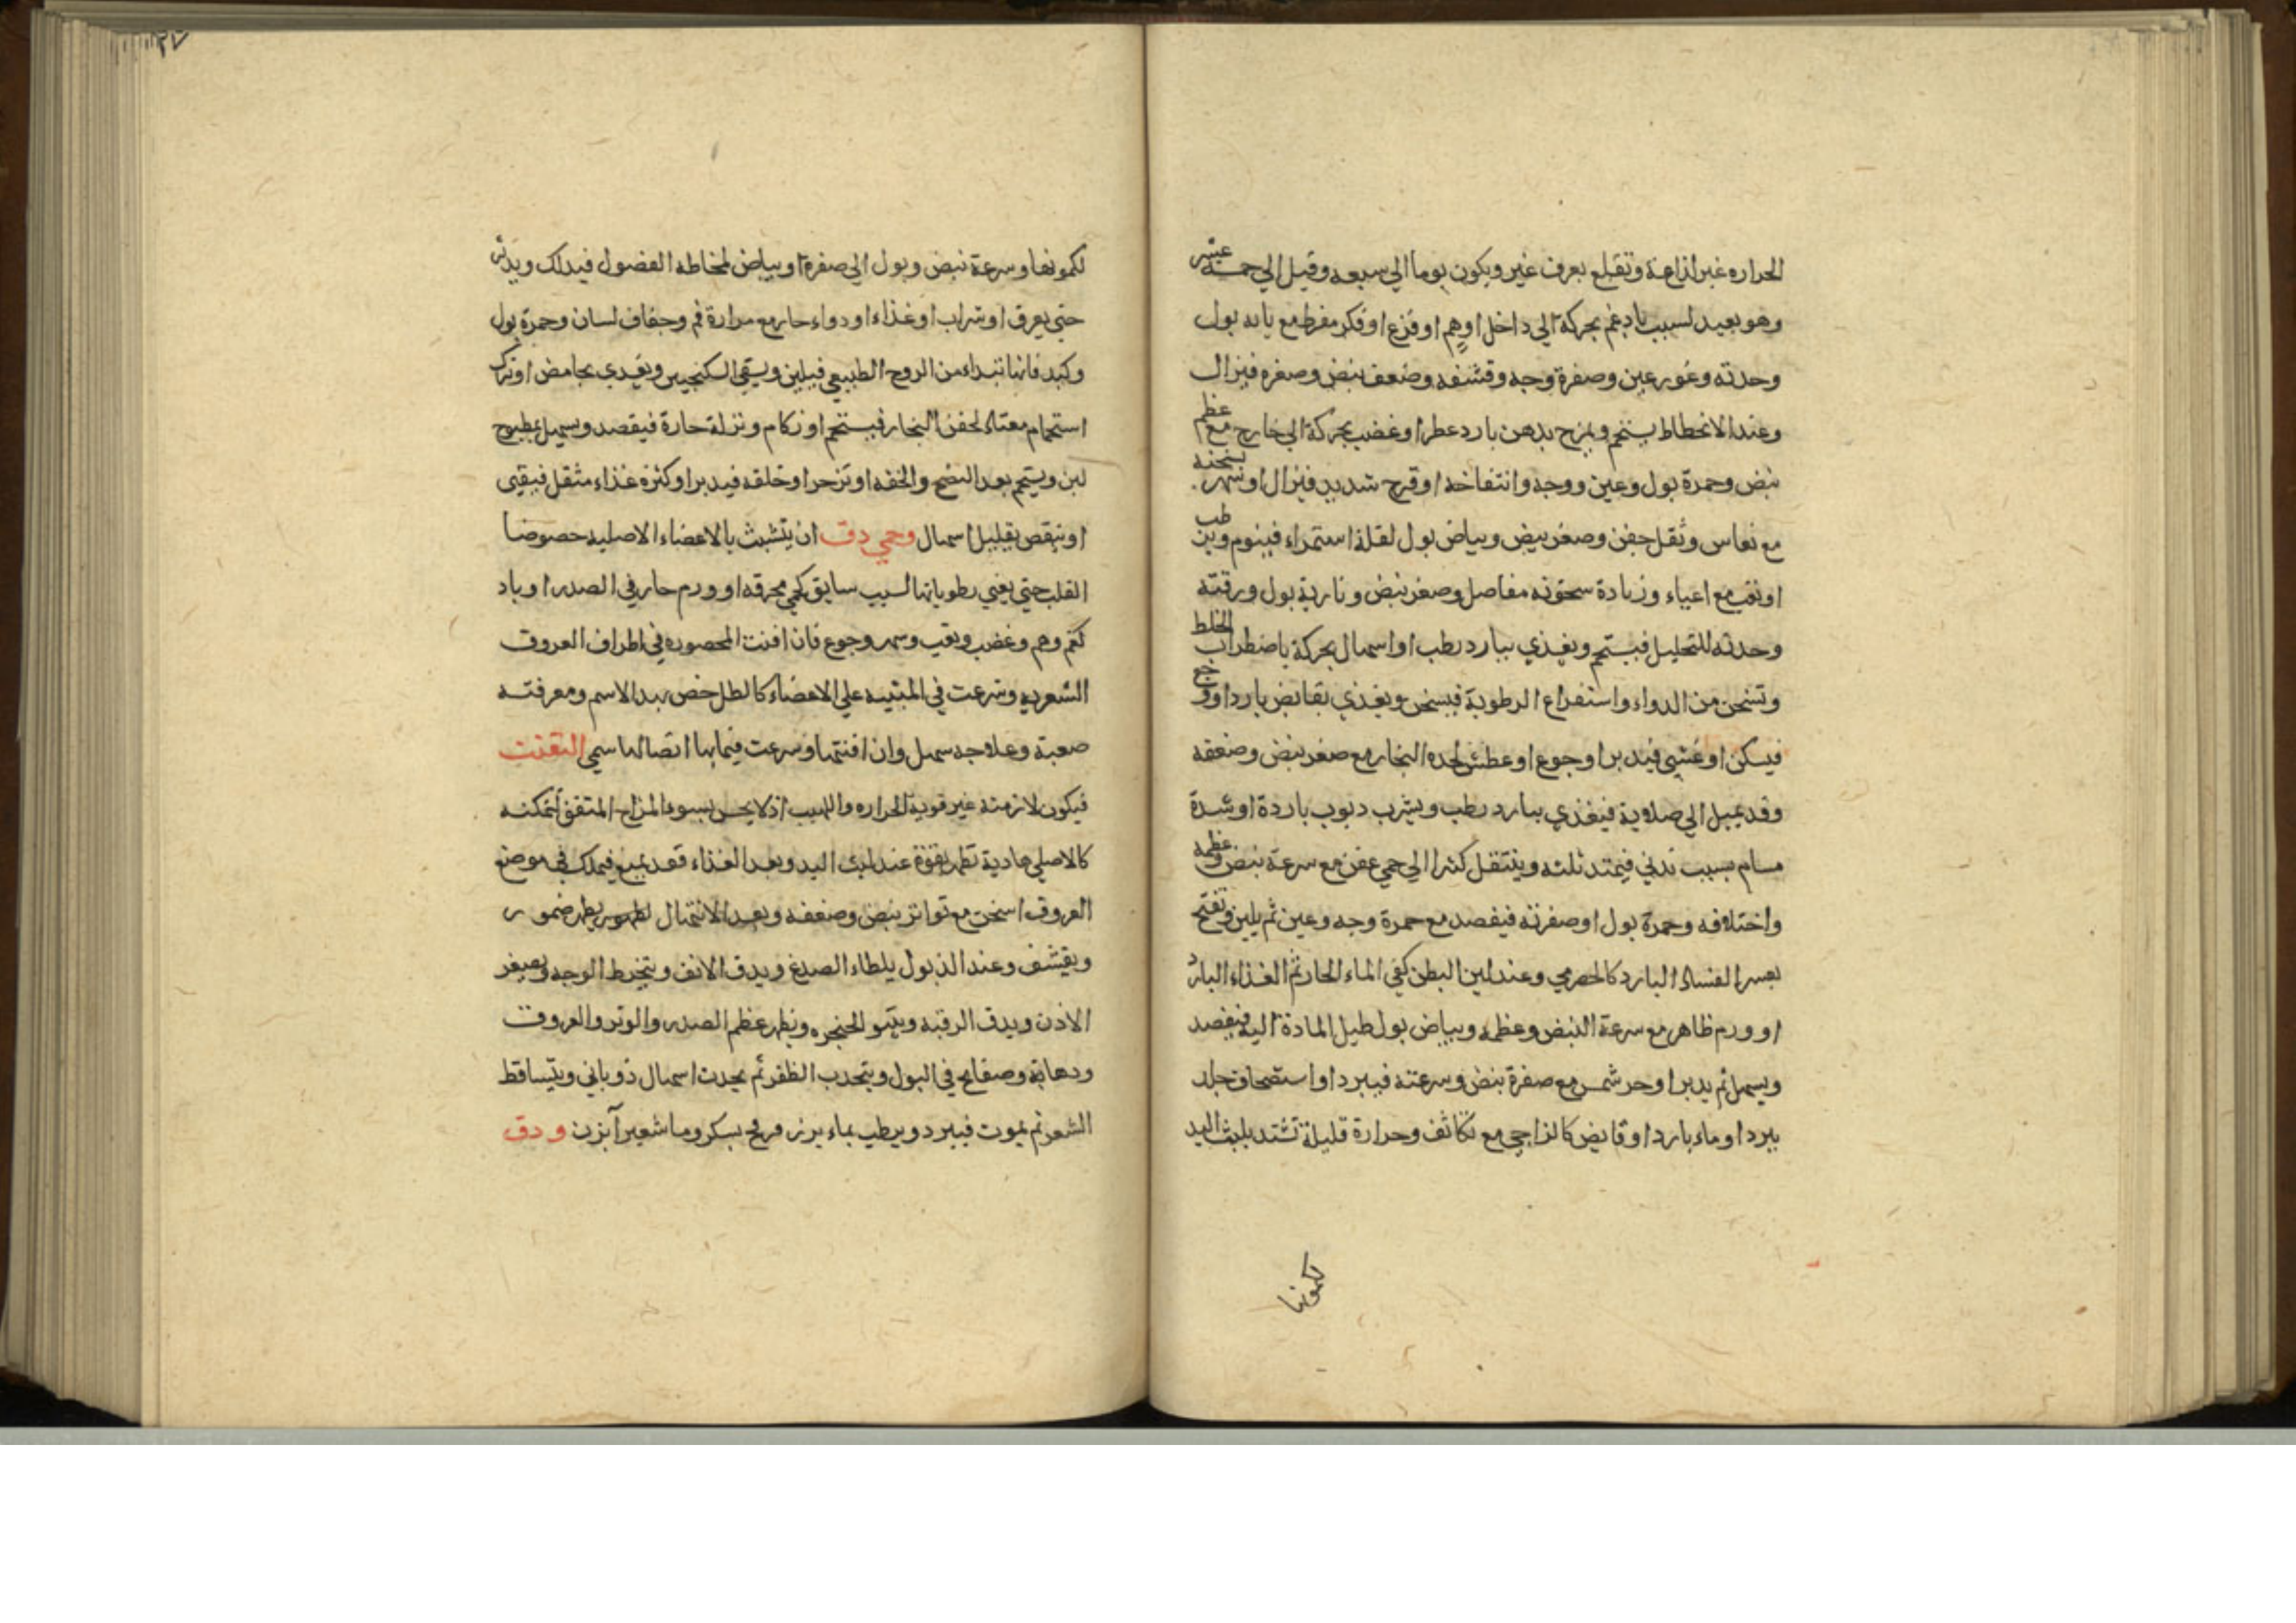 الحراره غير لذاعة وتقلع بعرق غير ويكون يوما الي سبعه وقيل الي خمسة عشر
وهو بعيد لسبب باد غم بحركة الي داخل او هم او فزع او فكر مفرط مع باريه بول
وحدته وغور عين وصفرة وجه وقشفه وضعف نبض وصغره فيزال
وعند الانحطاط يستحم ويمزح بدهن بارد عطر او غضب بحركة الي خارج مع عظم
نبض وحمرة بول وعين ووجه وانتفاخه او فرح شديد فيزال او سهر
مع نعاس وثقل جفن وصغر نبض وبياض بول لقلة استمراء فينوم ويرطب
او تعب مع اعياء وزيادة سخونه مفاصل وصغر نبض ونارية بول ورقته
وحدته للتحليل فيستحم ويغذي ببارد رطب او اسهال بحركة باضطراب الخلط
وتسخن من الدواء واستفراغ الرطوبة فيسخن ويغذي بقابض بارد او وجع
فيسكن او غشي فيدبر او جوع او عطش لحده البخار مع صغر نبض وضعفه
وقد يميل الي صلابة فيغذي ببارد رطب ويشرب ربوب باردة او شدة
مسام بسبب بدني فيمتد ثلثه وينتقل كثيرا الي حمي عفن مع سرعة نبض وعظمه
واختلافه وحمرة بول او صفرته فيفصد مع حمرة وجه وعين ثم يلين وتفتح
بعسر الغساله البارد كالحصرمي وعند لين البطن كفي الماء الحار ثم الغذاء البارد
او ورم ظاهر مع سرعة النبض وعظمه وبياض بول لميل المادة اليه فيفصد
ويسهل ثم يدبر او حر شمس مع صفرة نبض وسرعته فيبرد او استصحاف جلد
ببرد او ماء بارد او قابض كالزاجي مع تكاثف وحرارة قليلة تشتد بلبث اليد
لكمونها
٢٧
لكمونها وسرعة نبض وبول الي صفرة او بياض لمخاطه الفضول فيدلك ويدثر
حتي يعرق او شراب او غذاء او دواء حار مع مرارة فم وجفاف لسان وحمرة بول
وكبد فانها تبداء من الروح الطبيعي فيلين ويسقي السكنجبين ويغدي بحامض او ترك
استحمام معتاد لحفن البخار فيستحم او زكام ونزلة حارة فيفصد ويسهل بمطبوخ
لين ويستحم بعد النضج والخفه او تزحر او خلفه فيدبر او كثرة غذاء مثقل فيقيي
او ينقص بقليل اسهال وحمي دق ان يتشبث بالاعضاء الاصليه خصوصا
القلب حتي يفني رطوباتها لسبب سابق كحمي محرقه او ورم حار في الصدر او باد
كغم وهم وغضب وتعب وسهر وجوع فان افنت المحصوره في اطراف العروق
الشعريه وشرعت في المبثيه علي الاعضاء كالطل خص بهذا الاسم ومعرفته
صعبة وعلاجه سهل وان افنتها وشرعت فيما بها اتصالها سمي التفتت
فيكون لازمتة غير قوية الحراره واللهيب اذ لا يحس بسوء المزاج المتفق لتمكنه
كالاصلي هادية تظهر بقوة عند لبث اليد وبعد الغذاء فعد يمنع فيهلك في موضع
العروق اسخن مع تواتر نبض وضعفه وبعد الانتهال يظهر ضمور
ويقشف وعند الذبول يلطاء الصدغ ويدق الانف ويتخرط الوجه ويصغر
الاذن ويدق الرقبه وينتو الحنجره ويظهر عظم الصدر والوتر والعروق
ودهانة وصفايح في البول ويتحدب الظفر ثم يحدث اسهال ذوباني ويتساقط
الشعر ثم يموت فيبرد ويرطب بماء بزر قرع بسكر وماء شعير آبزن و دق